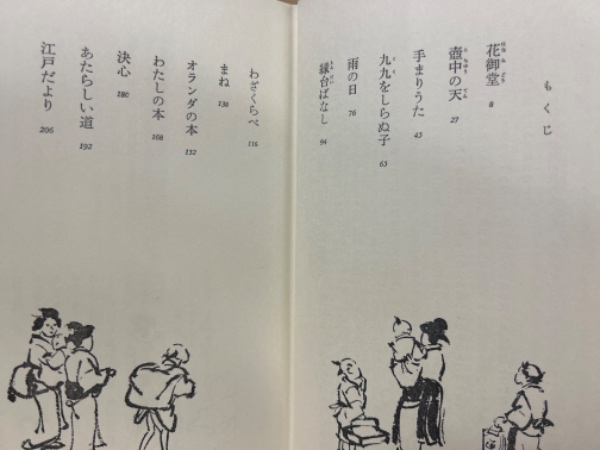 もくじ
花御堂 8
壺中の天 27
手まりうた 43
九九をしらぬ子 63
雨の日 76
縁台ばなし 94
わざくらべ 116
まね 136
オランダの本 152
わたしの本 168
決心 180
あたらしい道 192
江戸だより 206